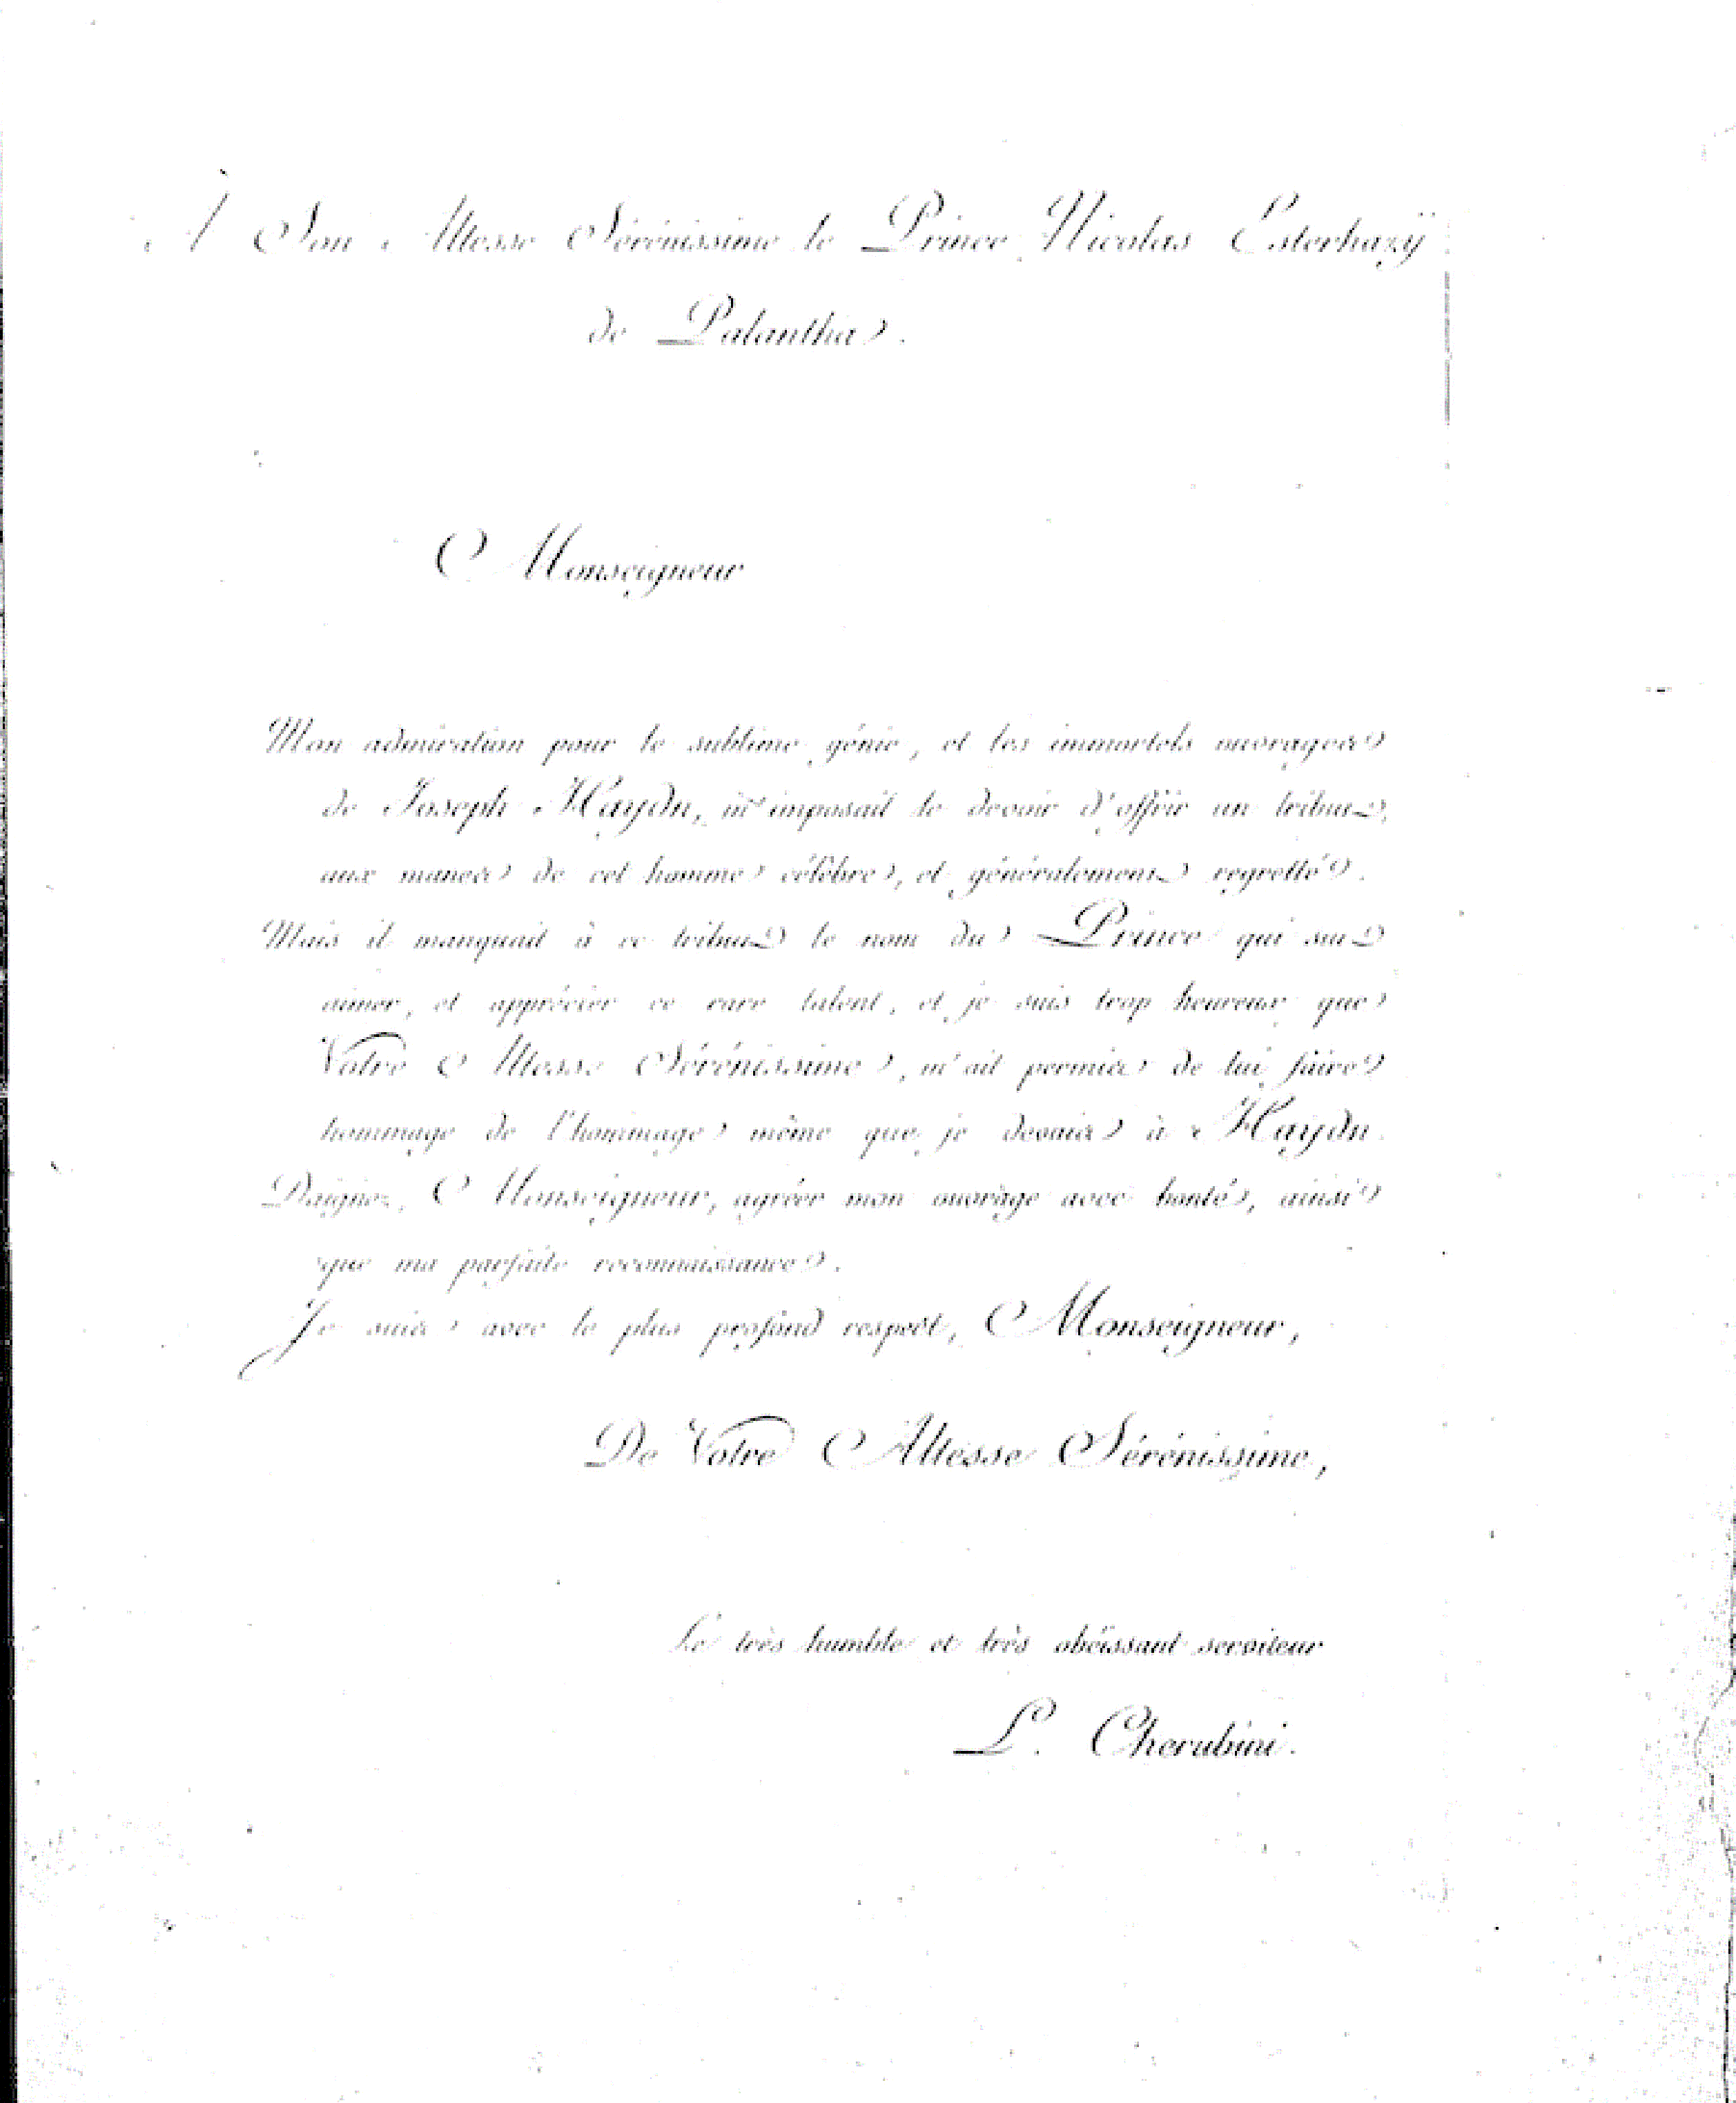 A Son Altesse Sérénissime le Prince Nicolas Esterhazÿ
de Palantha.
Monseigneur
Mon admiration pour le sublime génie, et les immortels ouvrages
de Joseph Haydn, m'imposait le devoir d'offrir un tribut
aux manes de cet homme célèbre, et généralement regretté.
Mais il manquait à ce tribut le nom du Prince qui sut
aimer, et apprécier ce rare talent, et je suis trop heureux que
Votre Altesse Sérénissime, m'ait permis de lui faire
hommage de l'hommage même que je devais à Haydn.
Daignez, Monseigneur, agréer mon ouvrage avec bonté, ainsi
que ma parfaite reconnaissance.
Je suis avec le plus profond respect, Monseigneur,
De Votre Altesse Sérénissime,
Le très humble et très obéissant serviteur
L. Cherubini.